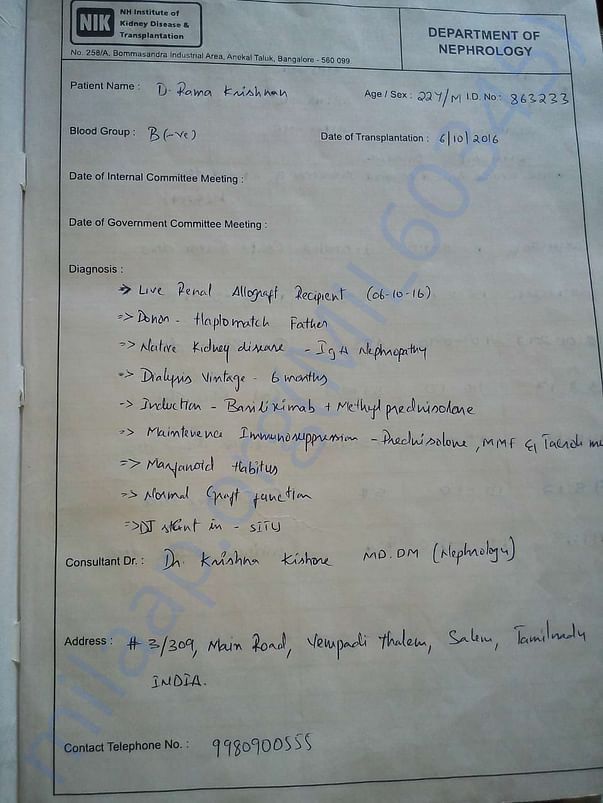 NIK
NH Institute of
Kidney Disease &
Transplantation
No. 258/A, Bommasandra Industrial Area, Anekal Taluk, Bangalore - 560 099
DEPARTMENT OF
NEPHROLOGY
Patient Name : D. Rama Krishnan
Age / Sex : 22Y/M I.D. No: 863233
Blood Group : B(-ve)
Date of Transplantation : 6/10/2016
Date of Internal Committee Meeting :
Date of Government Committee Meeting :
Diagnosis :
=> Live Renal Allograft Recipient (06-10-16)
=> Donor - Haplomatch Father
=> Native Kidney disease - IgA Nephropathy
=> Dialysis Vintage - 6 months
-> Induction - Basiliximab + Methyl prednisolone
=> Maintevence Immunosuppression - Prednisolone, MMF & Tacrolime
=> Marfanoid Habitus
=> Normal Graft function
=> DJ stent in - SITU
Consultant Dr. : Dr. Krishna Kishore MD.DM (Nephrology)
Address : # 3/309, Main Road, Vempadi Thalem, Salem, Tamilnadu
INDIA.
Contact Telephone No. : 9980900555